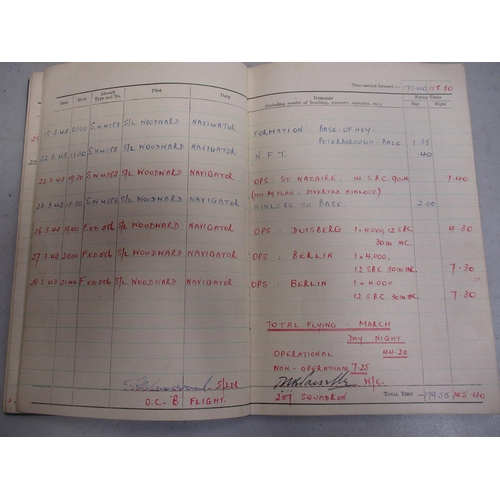 Time carried forward :— 175.40 118.50
Date Hour Aircraft Type and No. Pilot Duty
REMARKS (including results of bombing, gunnery, exercises, etc.) Flying Times Day Night
S/L WOODWARD NAVIGATOR FORMATION BASE-UPHEY-
PETERBOROUGH-BASE 1.35
22.3.43 S/L WOODWARD NAVIGATOR N.F.T. .40
22.3.43 S/L WOODWARD NAVIGATOR OPS: ST. NAZAIRE. 14 S.B.C. 7.40
(HIT BY FLAK - DIVERTED KINLOSS)
23.3.43 S/L WOODWARD NAVIGATOR KINLOSS TO BASE. 2.00
26.3.43 1900 S/L WOODWARD NAVIGATOR OPS: DUISBERG 1×4,000, 12 SBC 4.30
30lb INC.
27.3.43 2000 S/L WOODWARD NAVIGATOR OPS: BERLIN 1×4,000,
12 SBC. 30lb INC. 7.30
29.3.43 S/L WOODWARD NAVIGATOR OPS: BERLIN 1×4000
12 S.B.C. 30lb INC. 7.30
TOTAL FLYING MARCH
DAY NIGHT
OPERATIONAL 44.20
NON-OPERATIONAL 7.25
S/LDR W/C.
O.C. 'B' FLIGHT. 207 SQUADRON
TOTAL TIME